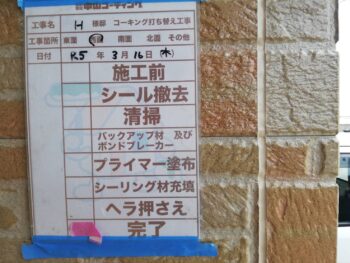 工事名 H 様邸 コーキング打ち替え工事
工事箇所 東面 西面 南面 北面 その他
日付 R5 年 3 月 16 日 (木)
施工前
シール撤去
清掃
バックアップ材 及び
ボンドブレーカー
プライマー塗布
シーリング材充填
ヘラ押さえ
完了